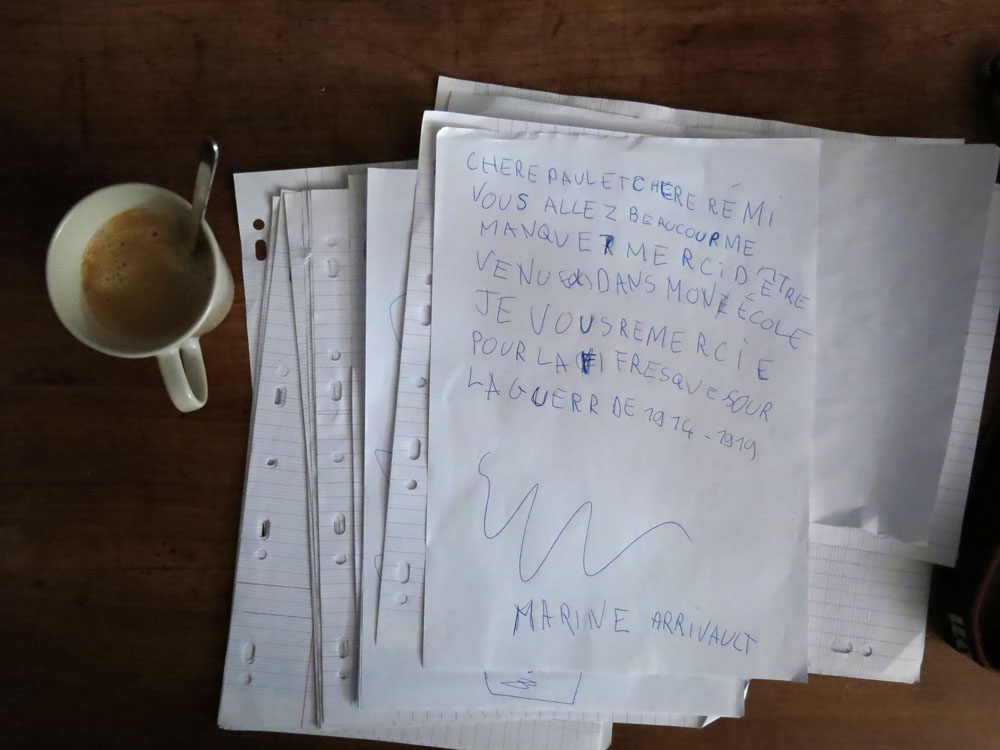 CHERE PAUL ET CHERE RÉMI
VOUS ALLEZ BEAUCOUR ME
MANQUER MERCI D'ÊTRE
VENU DANS MON ÉCOLE
JE VOUS REMERCIE
POUR LA FRESQUE SOUR
LA GUERR DE 1914-1919
MARINE ARRIVAULT